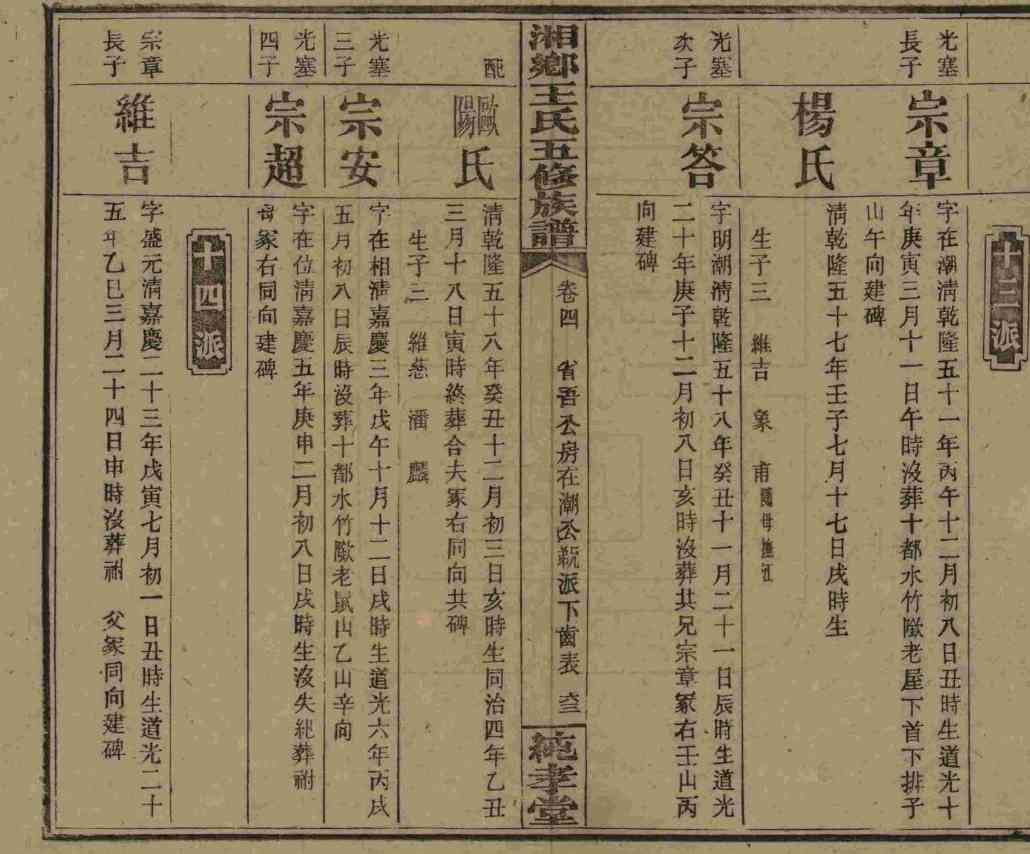 十三派
光塞
長子
宗章
字在潮清乾隆五十一年丙午十二月初八日丑時生道光十
年庚寅三月十一日午時沒葬十都水竹陇老屋下首下排子
山午向建碑
楊氏
清乾隆五十七年壬子七月十七日戌時生
生子三 維吉 象 甫
光塞
次子
宗答
字明潮清乾隆五十八年癸丑十一月二十一日辰時生道光
二十年庚子十二月初八日亥時沒葬其兄宗章冢右壬山丙
向建碑
湘鄉王氏五修族譜
卷四 省吾公房在潮公 派下齒表
純孝堂
配
歐陽氏
清乾隆五十八年癸丑十二月初三日亥時生同治四年乙丑
三月十八日寅時終葬合夫冢右同向共碑
生子三 維慈 潘 麟
光塞
三子
宗安
字在相清嘉慶三年戊午十月十二日戌時生道光六年丙戌
五月初八日辰時沒葬十都水竹陇老鼠山乙山辛向
光塞
四子
宗超
字在位清嘉慶五年庚申二月初八日戌時生沒失紀葬祔
母冢右同向建碑
十四派
宗章
長子
維吉
字盛元清嘉慶二十三年戊寅七月初一日丑時生道光二十
五年乙巳三月二十四日申時沒葬祔 父冢同向建碑